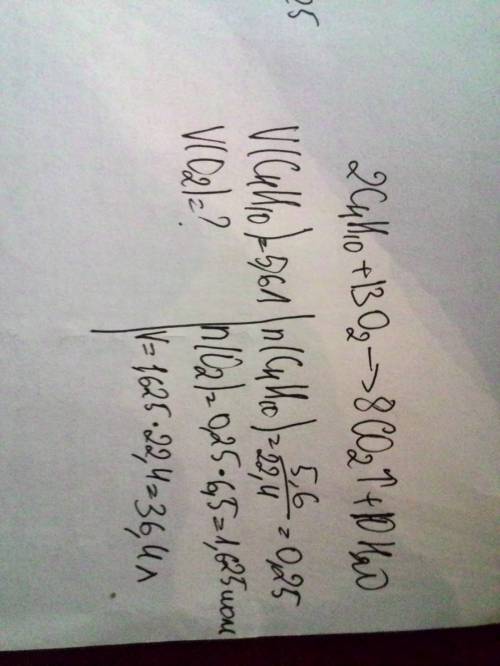 25
2C4H10 + 13O2 → 8CO2↑ + 10H2O
V(C4H10) = 5,6л | n(C4H10) = 5,6/22,4 = 0,25
V(O2) = ? | n(O2) = 0,25 · 6,5 = 1,625моль
V = 1,625 · 22,4 = 36,4л